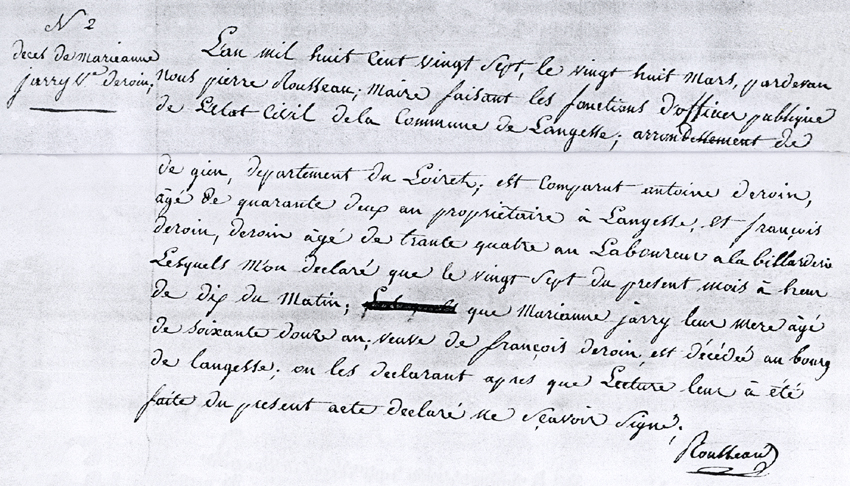 N 2
deces de marieanne
jarry Ve deroin;
L'an mil huit cent vingt sept, le vingt huit mars, pardevan
Nous pierre Rousseau; maire faisant les fonctions d'officier publique
de L'Etat Civil de la Commune de Langesse; arrondissement de
de gien, departement du Loiret; est comparut antoine deroin,
âgé de quarante deux an propriétaire à Langesse, et françois
deroin, deroin âgé de trante quatre an Laboureur a la billarderie
Lesquels m'on declaré que le vingt sept du present mois à heur
de dix du Matin; que Marieanne jarry leur mere âgé
de soixante douze an; veuve de françois deroin, est décédée au bourg
de langesse; on les declarant apres que Lecture leur à été
faite du present acte declaré ne sçavoir signé;
Rousseau